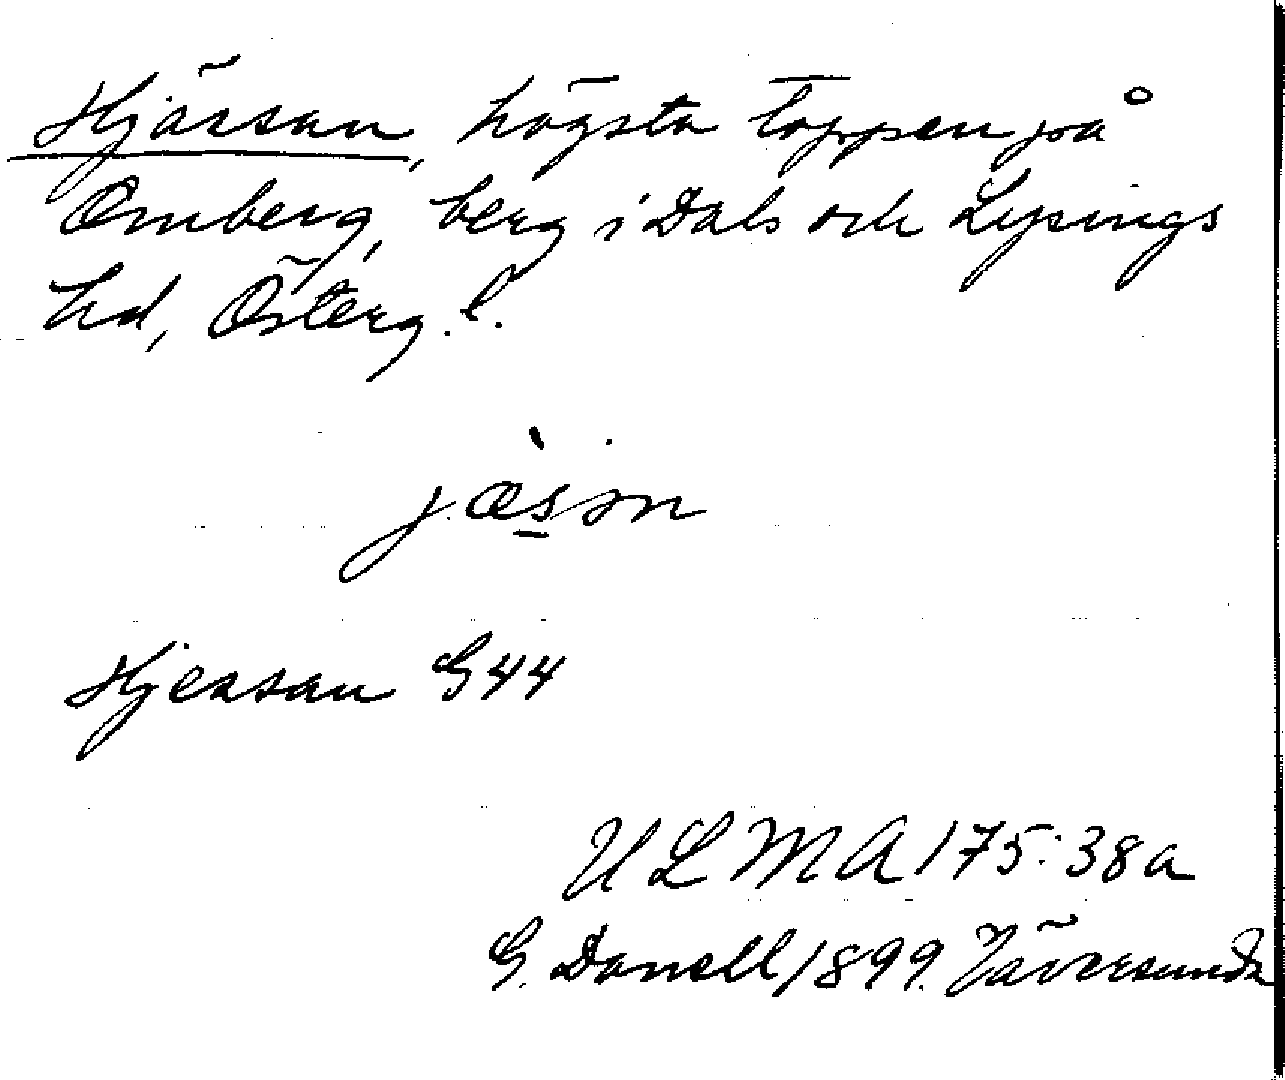 Hjässan, högsta toppen på
Omberg, berg i Dals och Lysings
hd, Österg. l.
jæ̀s̠ɜn
Hjessan G44
ULMA 175:38a
G. Danell 1899. Väversunda